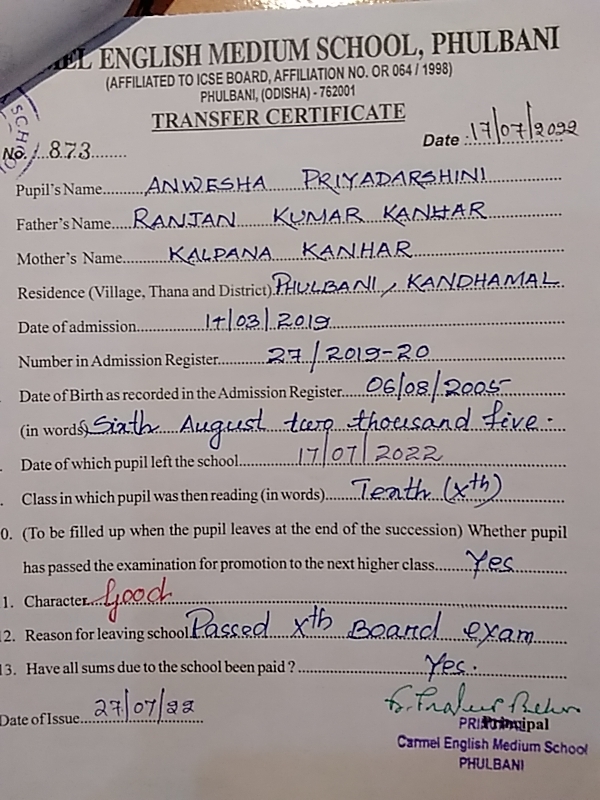 MEL ENGLISH MEDIUM SCHOOL, PHULBANI
(AFFILIATED TO ICSE BOARD, AFFILIATION NO. OR 064 / 1998)
PHULBANI, (ODISHA) - 762001
TRANSFER CERTIFICATE
SCHOOL
No. 873 Date : 17/07/2022
Pupil's Name ANWESHA PRIYADARSHINI
Father's Name RANJAN KUMAR KANHAR
Mother's Name KALPANA KANHAR
Residence (Village, Thana and District) PHULBANI, KANDHAMAL
Date of admission 14/03/2019
Number in Admission Register 27/2019-20
Date of Birth as recorded in the Admission Register 06/08/2005
(in words) Sixth August two thousand five.
Date of which pupil left the school 17/07/2022
Class in which pupil was then reading (in words) Tenth (Xth)
0. (To be filled up when the pupil leaves at the end of the succession) Whether pupil
has passed the examination for promotion to the next higher class Yes
1. Character Good
2. Reason for leaving school Passed Xth Board exam
13. Have all sums due to the school been paid ? Yes.
Date of Issue 27/07/22
Principal
Carmel English Medium School
PHULBANI